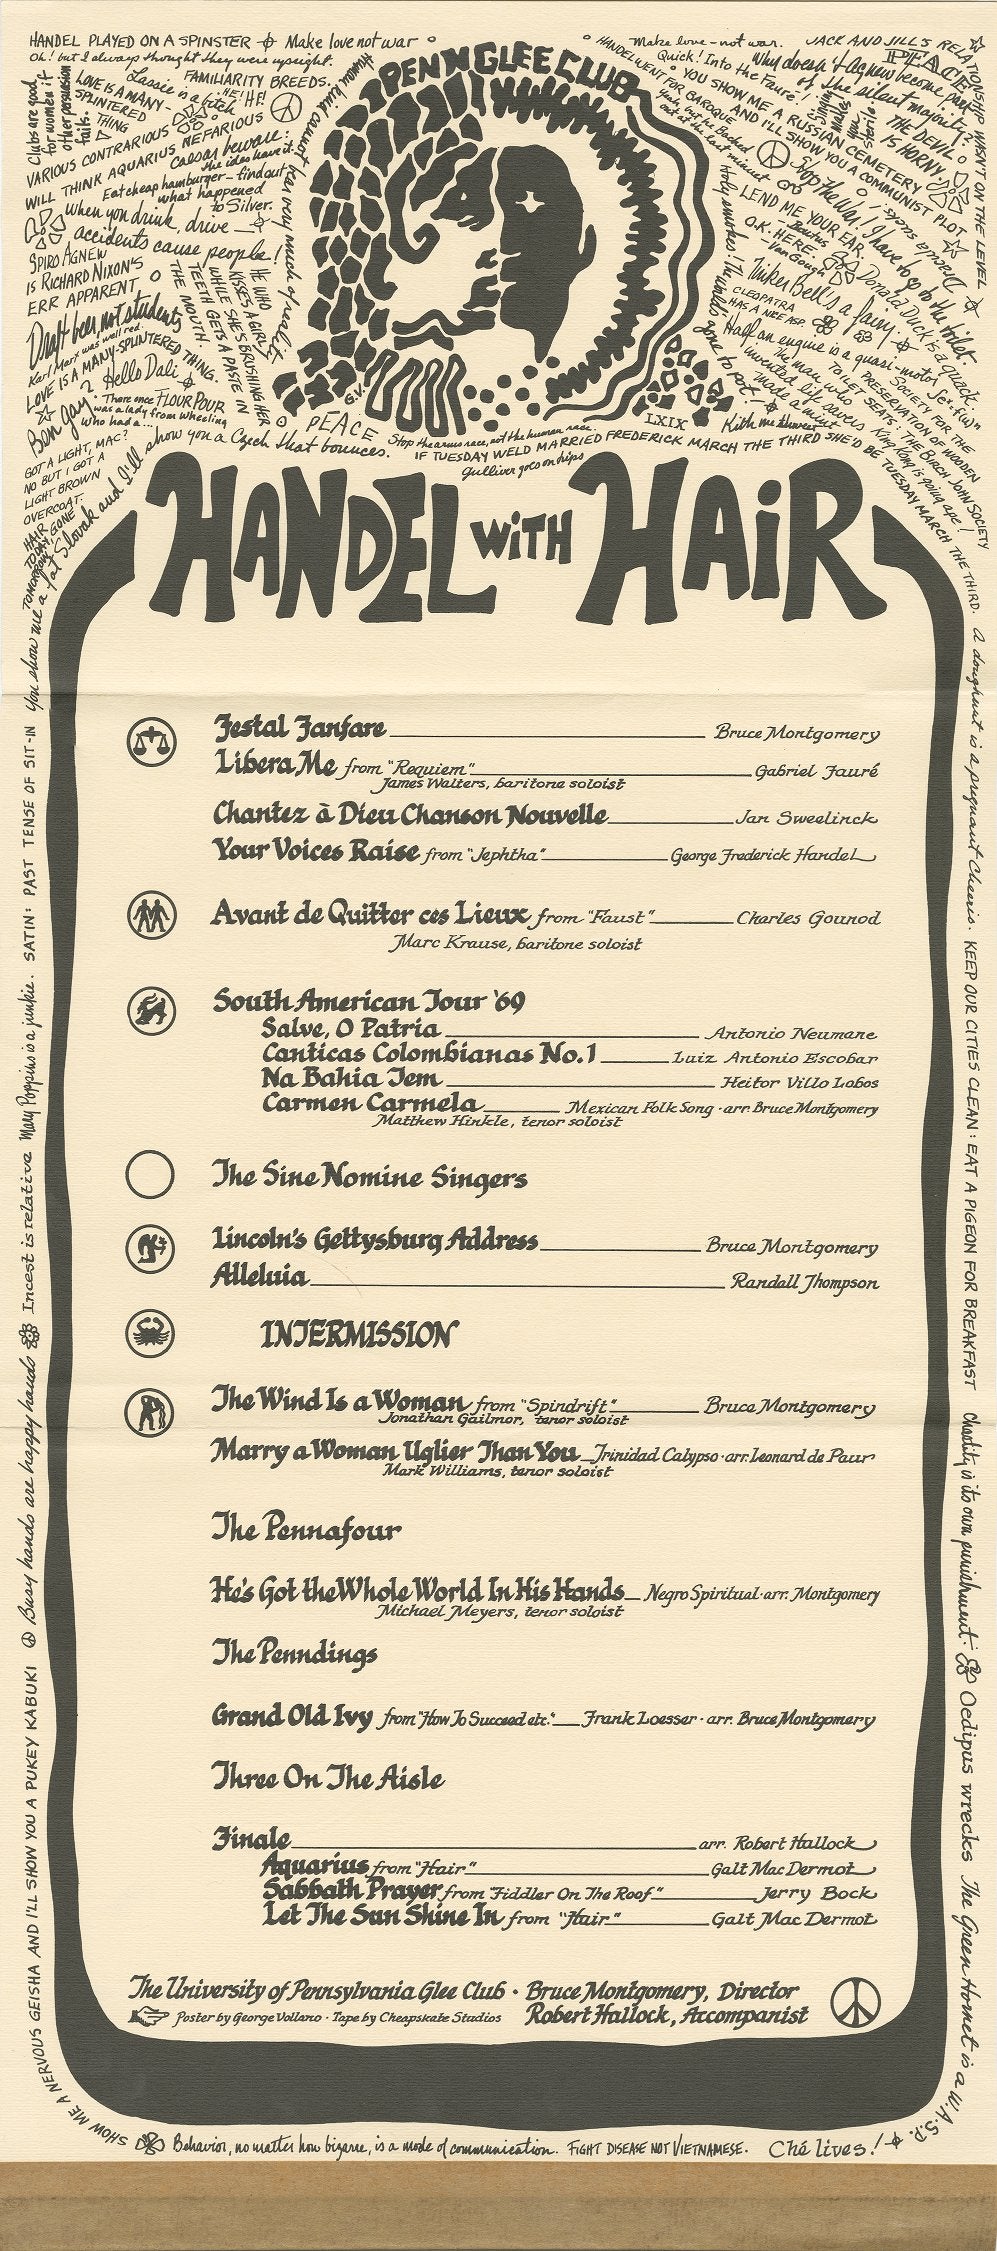 HANDEL PLAYED ON A SPINSTER
Oh! but I always thought they were upright.
Make love not war
FAMILIARITY BREEDS.
Lassie is a bitch
HE! HE!
Clubs are good for women if other persuasion fails.
LOVE IS A MANY-SPLINTERED THING
VARIOUS CONTRARIOUS
WILL THINK AQUARIUS NEFARIOUS
Caesar beware:
the ides have it.
Eat cheap hamburger - find out
what happened
to Silver.
When you drink, drive -
accidents cause people!
SPIRO AGNEW
IS RICHARD NIXON'S
ERR APPARENT
HE WHO
KISSES A GIRLY
WHILE SHE'S BRUSHING HER
TEETH GETS A PASTE IN
THE MOUTH.
Human kind cannot bear very much of reality
Draft beer, not students
Karl Marx was well red.
LOVE IS A MANY-SPLINTERED THING.
Ben gay?
Hello Dali
There once FLOUR POUR
was a lady from Wheeling
Who had a...
GOT A LIGHT, MAC?
NO BUT I GOT A
LIGHT BROWN
OVERCOAT.
HAIR TODAY, GONE TOMORROW.
You show me a fat Slovak and I'll show you a Czech that bounces.
PENN GLEE CLUB
G.V.
PEACE
LXIX
Stop the arms race, not the human race.
IF TUESDAY WELD MARRIED FREDERICK MARCH THE THIRD SHE'D BE TUESDAY MARCH THE THIRD.
Gulliver goes on trips
Make love - not war.
HANDEL WENT FOR BAROQUE
Yeah, but he Bached
out at the last minuet
Quick! Into the Fauré!
YOU SHOW ME A RUSSIAN CEMETERY
AND I'LL SHOW YOU A COMMUNIST PLOT
JACK AND JILL'S RELATIONSHIP WASN'T ON THE LEVEL
PEACE
Why doesn't Agnew become part
of the silent majority?
THE DEVIL
IS HORNY.
Stop the War! I have to go to the toilet.
LEND ME YOUR EAR.
-Brutus
O.K. HERE.
-Van Gough
Donald Duck is a quack
Tinker Bell's a fairy.
CLEOPATRA
HAS A NICE ASP.
Half an engine is a quasi-motor
The man who
invented life savers
made a mint
TO LET SEATS: THE BIRCH JOHN SOCIETY
SOCIETY FOR THE
PRESERVATION OF WOODEN
King Kong is going ape!
HANDEL WITH HAIR
Festal Fanfare Bruce Montgomery
Libera Me from "Requiem" Gabriel Fauré
James Walters, baritone soloist
Chantez à Dieu Chanson Nouvelle Jan Sweelinck
Your Voices Raise from "Jephtha" George Frederick Handel
Avant de Quitter ces Lieux from "Faust" Charles Gounod
Marc Krause, baritone soloist
South American Tour '69
Salve, O Patria Antonio Neumane
Canticas Colombianas No. 1 Luiz Antonio Escobar
Na Bahia Tem Heitor Villo Lobos
Carmen Carmela Mexican Folk Song · arr. Bruce Montgomery
Matthew Hinkle, tenor soloist
The Sine Nomine Singers
Lincoln's Gettysburg Address Bruce Montgomery
Alleluia Randall Thompson
INTERMISSION
The Wind Is a Woman from "Spindrift" Bruce Montgomery
Jonathan Gailmor, tenor soloist
Marry a Woman Uglier Than You Trinidad Calypso · arr. Leonard de Paur
Mark Williams, tenor soloist
The Pennafour
He's Got the Whole World In His Hands Negro Spiritual · arr. Montgomery
Michael Meyers, tenor soloist
The Penndings
Grand Old Ivy from "How To Succeed etc." Frank Loesser · arr. Bruce Montgomery
Three On The Aisle
Finale arr. Robert Hallock
Aquarius from "Hair" Galt MacDermot
Sabbath Prayer from "Fiddler On The Roof" Jerry Bock
Let The Sun Shine In from "Hair" Galt MacDermot
The University of Pennsylvania Glee Club · Bruce Montgomery, Director
Poster by George Vollano · Tape by Cheapskate Studios Robert Hallock, Accompanist
SATIN: PAST TENSE OF SIT-IN
Mary Poppins is a junkie.
Incest is relative
Busy hands are happy hands
SHOW ME A NERVOUS GEISHA AND I'LL SHOW YOU A PUKEY KABUKI
A doughnut is a pregnant Cheerio.
KEEP OUR CITIES CLEAN: EAT A PIGEON FOR BREAKFAST
Chastity is its own punishment.
Oedipus wrecks
The Green Hornet is a W.A.S.P.
Behavior, no matter how bizarre, is a mode of communication. FIGHT DISEASE NOT VIETNAMESE. Ché lives!